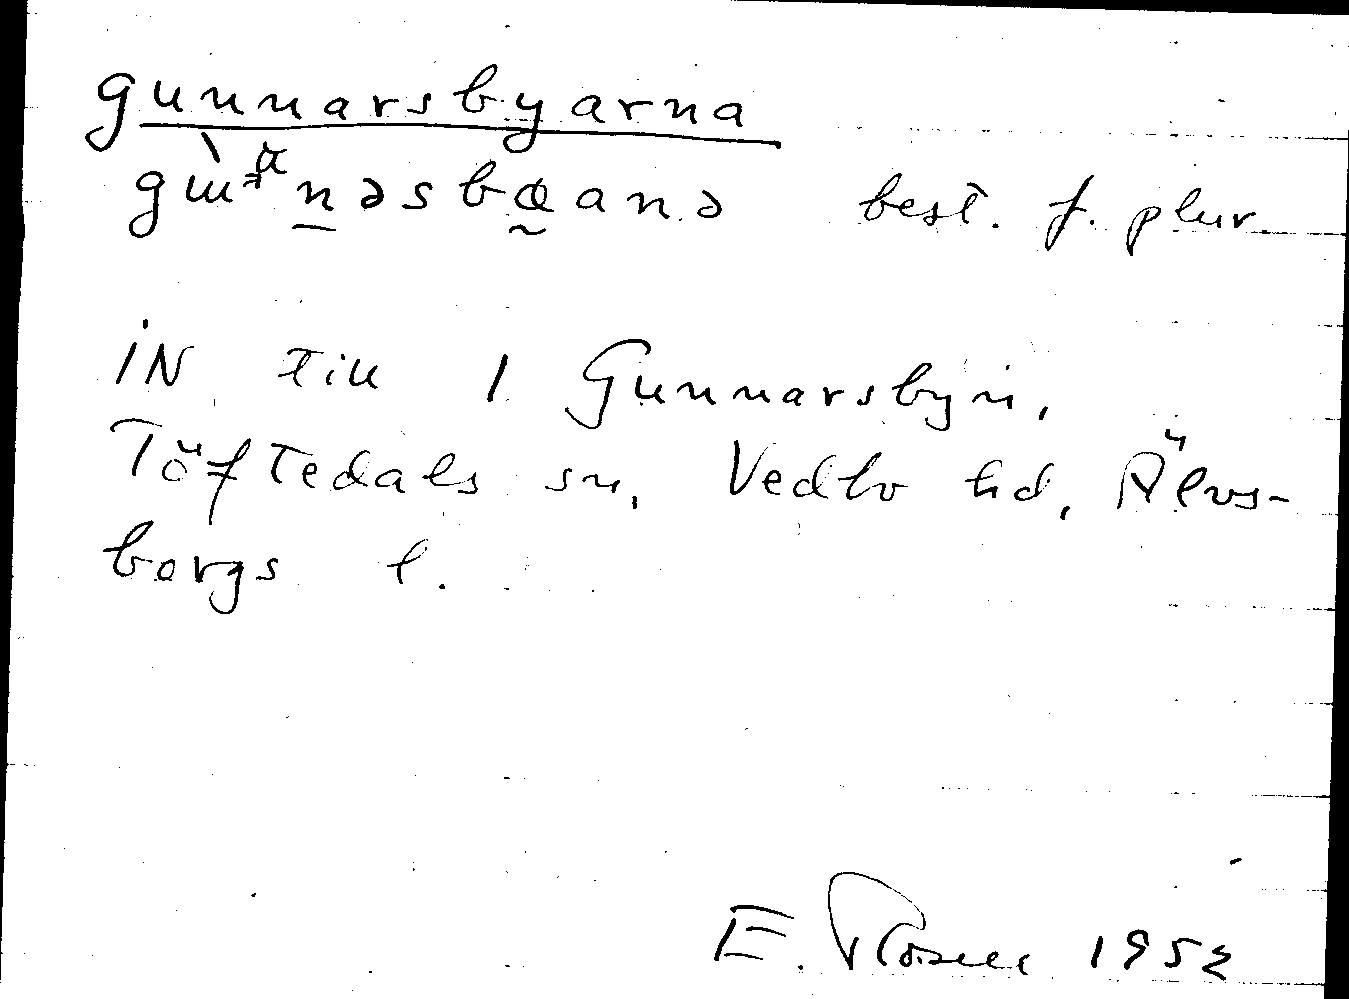 gunnarsbyarna
best. f. plur.
IN till 1 Gunnarsbyn,
Töftedals sn, Vedbo hd, Älvs-
borgs l.
E. 1952